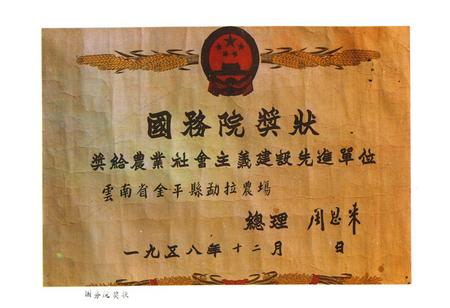 國務院獎狀
獎給農業社會主義建設先進單位
雲南省金平縣勐拉農場
總理 周恩來
一九五八年十二月 日
國务院奖狀